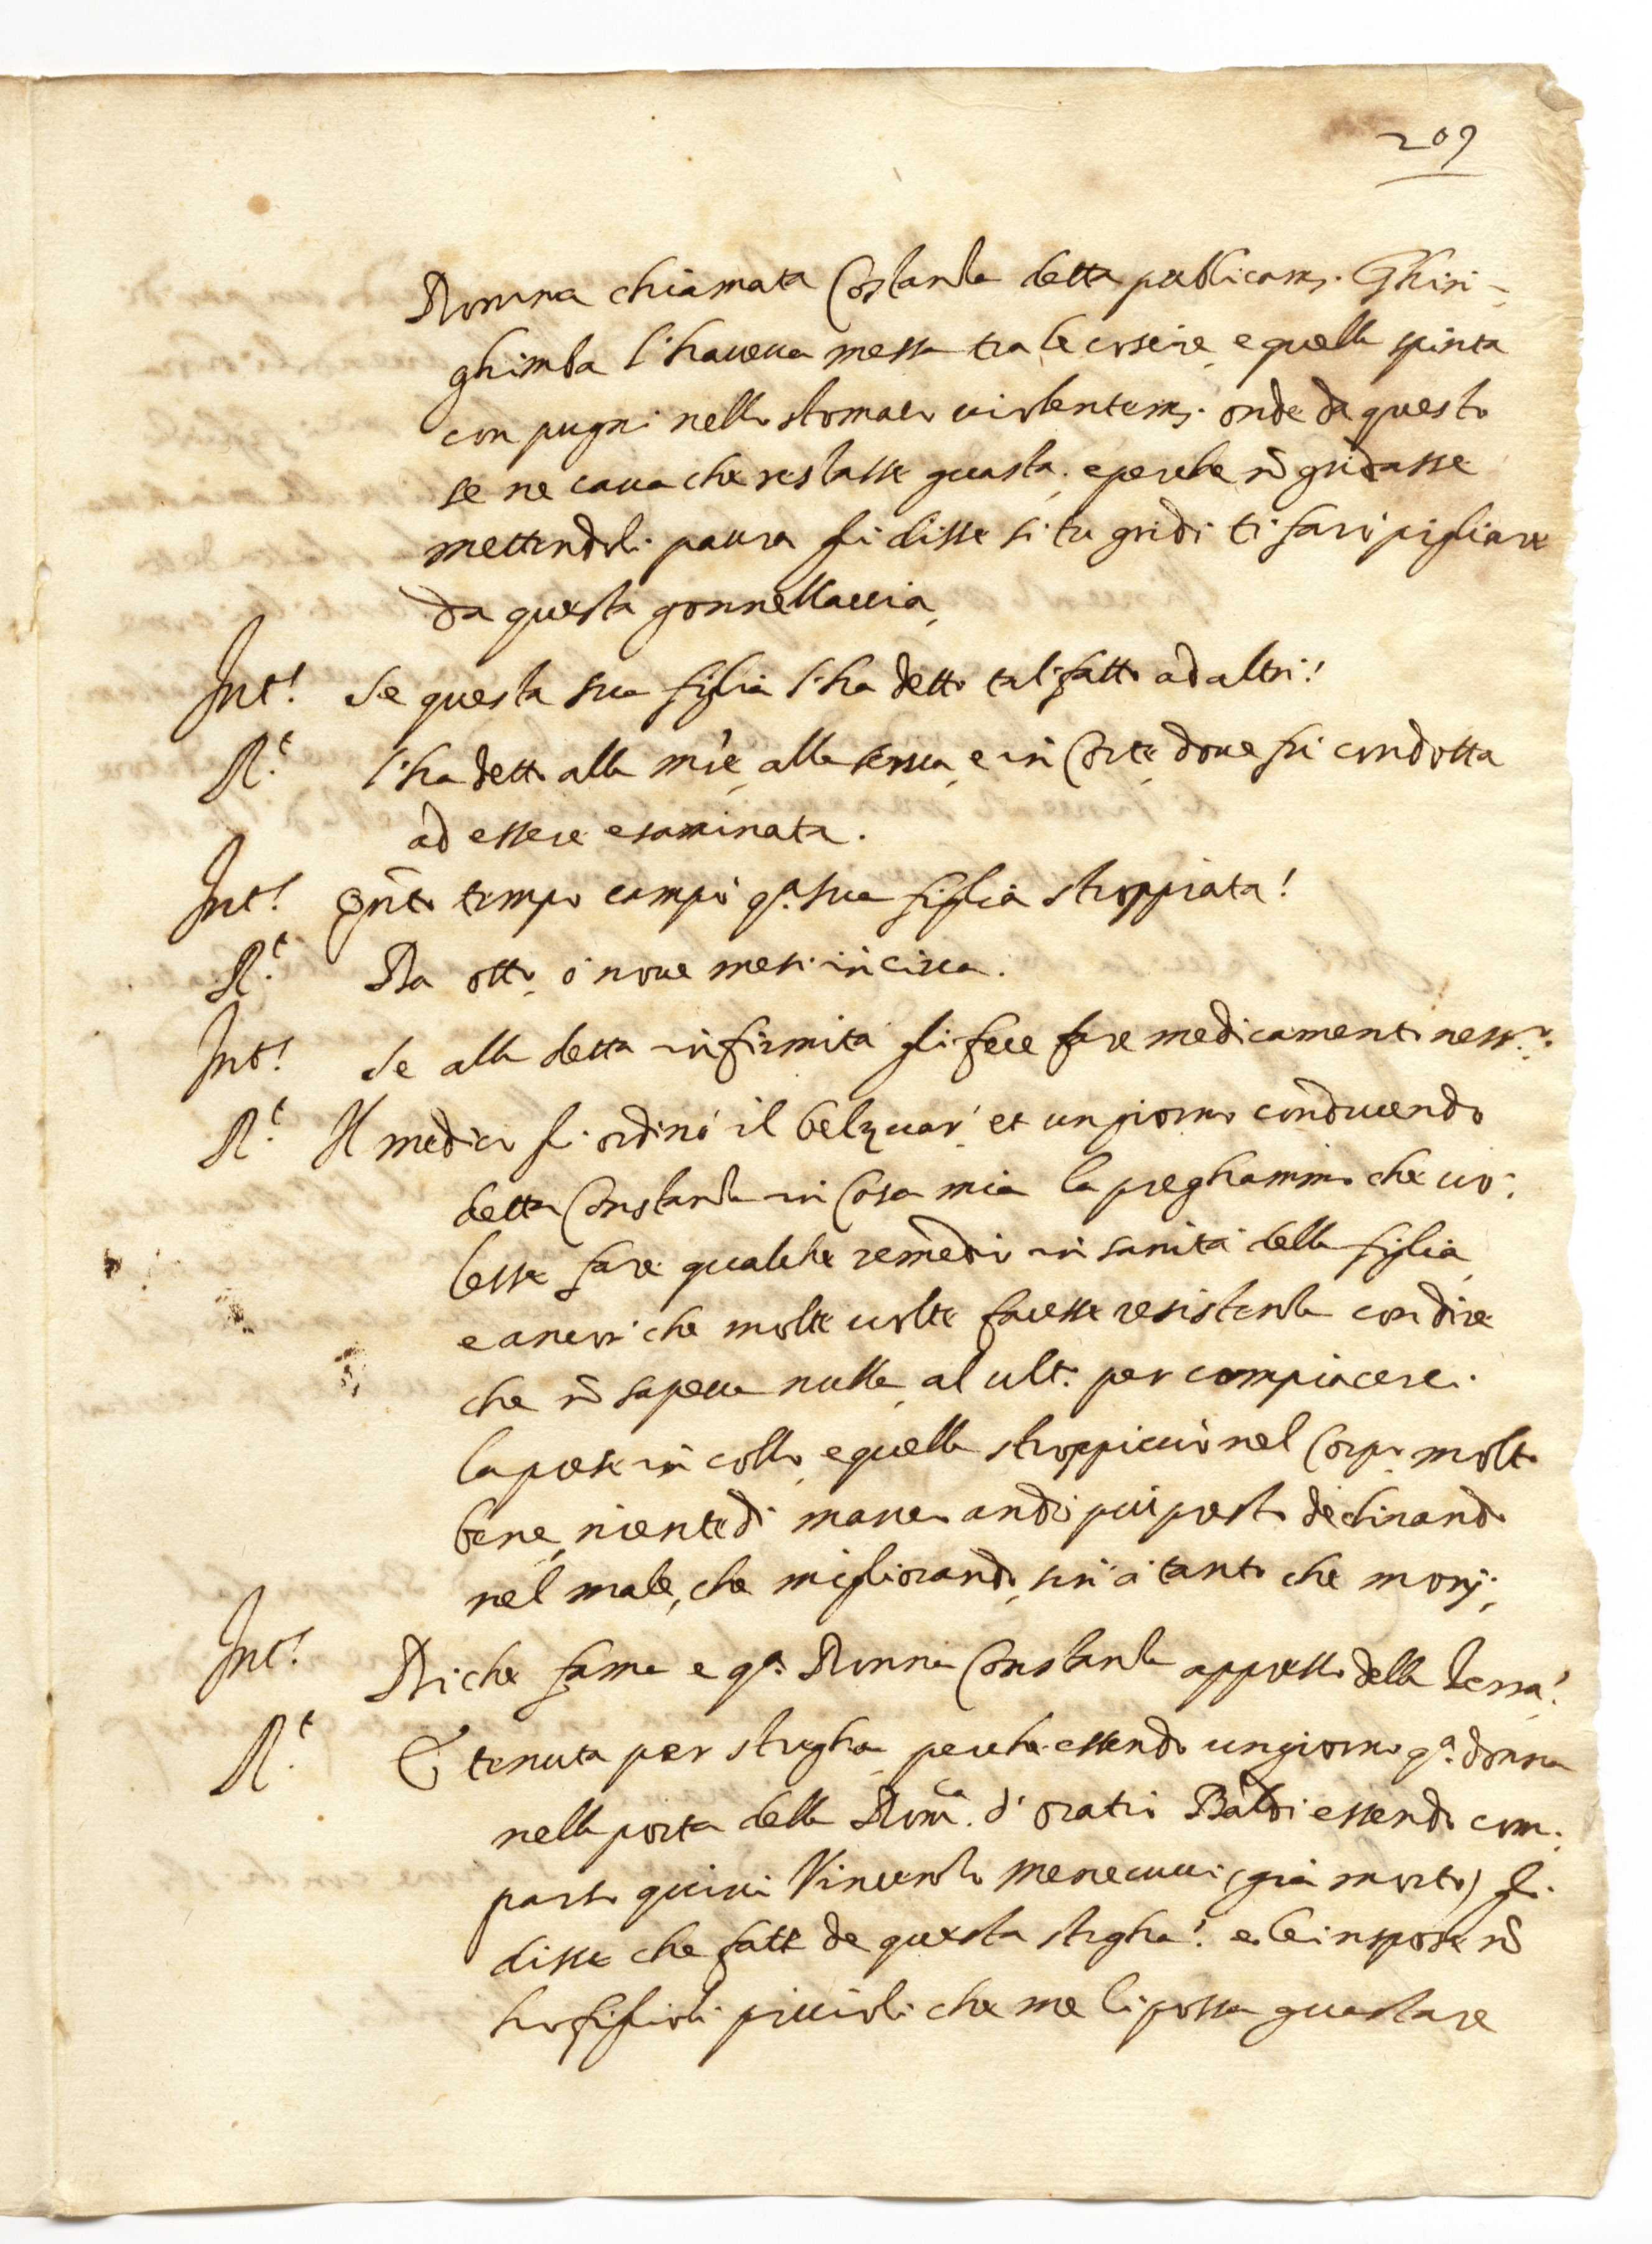 209
Donna chiamata Costanza detta publicam.te Ghiri-
ghimba l'haveva messa tra le coscie, e quella spinta
con pugni nello stomaco violentem.te onde da questo
se ne cava che restasse guasta, e perche nō gridasse
mettendoli paura gli disse si tu gridi ti farò pigliare
da questa gonnellaccia,
Int.t Se questa sua figlia l'ha detto tal fatto ad altri!
R.t l'ha detto alla mr̄e, alla, e in Corte dove fu condotta
ad essere esaminata.
Int.t Qn̄to tempo campò q.a sua figlia stroppiata!
R.t Da otto, ò nove mesi in circa.
Int.t Se alla detta infirmità gli fece fare medicamenti ness.o
R.t Il medico gli ordinò il belzuar, et un giorno conducendo
detta Constanza in Casa mia la preghammo che vo-
lesse fare qualche remedio in sanità della figlia
e ancor che molte volte facesse resistenza con dire
che nō sapeva nulla, al ult.o per compiacere
la prese in collo, e quella stroppicciò nel Corpo molto
bene, niente di manco andò più presto declinando
nel male, che migliorando, sin' à tanto che morj,
Int.t Di che fama e q.a Donna Constanza appresso della Terra!
R.t E tenuta per stregha, perche essendo un giorno q.a donna
nella porta della Dom.ca d'Oratio Baldi essendo com-
parso quivi Vincenzo Menecucci (già morto) gli
disse che fate de questa stregha! e lei rispose nō
ho figlioli piccioli che me li possa guastare